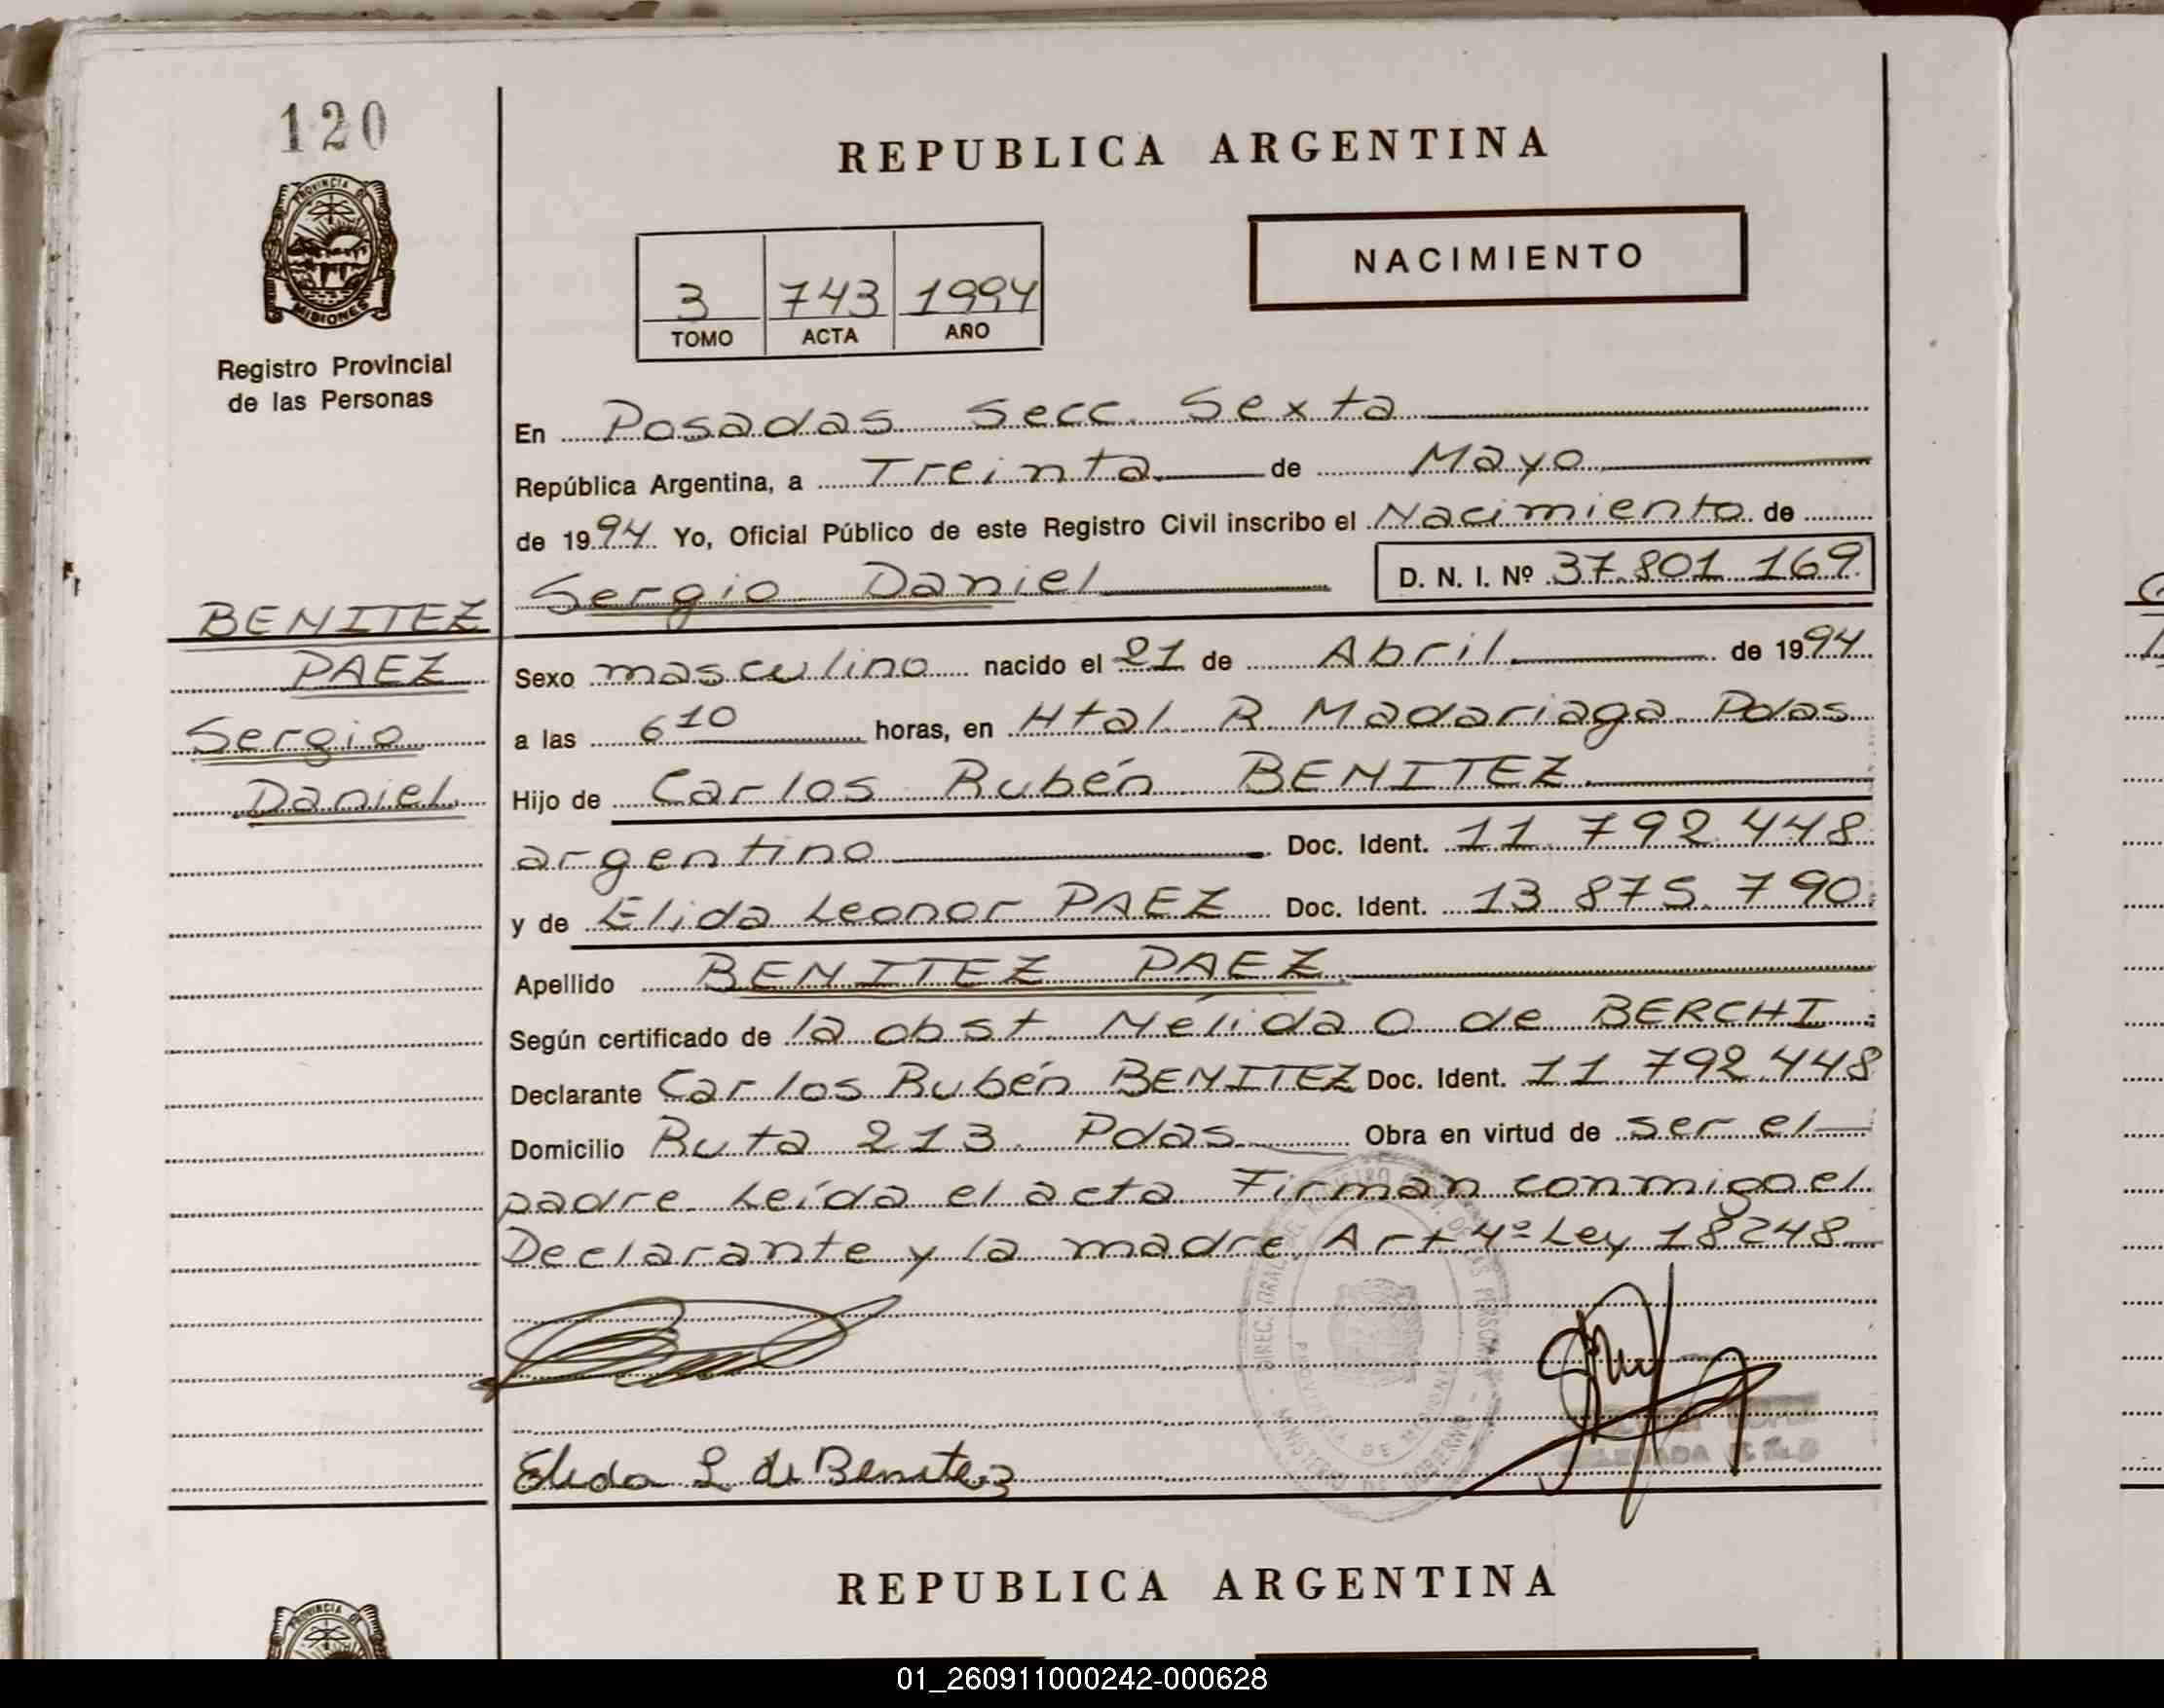 120
PROVINCIA DE
MISIONES
Registro Provincial
de las Personas
REPUBLICA ARGENTINA
3 743 1994
TOMO ACTA AÑO
NACIMIENTO
En Posadas Secc. Sexta
República Argentina, a Treinta de Mayo
de 1994 Yo, Oficial Público de este Registro Civil inscribo el Nacimiento de
Sergio Daniel D. N. I. Nº 37.801 169
BENITEZ
PAEZ
Sergio
Daniel
Sexo masculino nacido el 21 de Abril de 1994
a las 6 10 horas, en Htal R Madariaga Pdas
Hijo de Carlos Rubén BENITEZ
argentino Doc. Ident. 11 792 448
y de Elida Leonor PAEZ Doc. Ident. 13 875. 790
Apellido BENITEZ PAEZ
Según certificado de la obst. Nélida O de BERCHI
Declarante Carlos Rubén BENITEZ Doc. Ident. 11 792.448
Domicilio Ruta 213. Pdas Obra en virtud de ser el
padre. Leída el acta Firman conmigo el
Declarante y la madre. Art 4º Ley 18248
DE LAS PERSONAS
PROVINCIA DE MISIONES
MINISTERIO DE GOBIERNO
Elida L de Benitez
REPUBLICA ARGENTINA
PROVINCIA DE
01_260911000242-000628